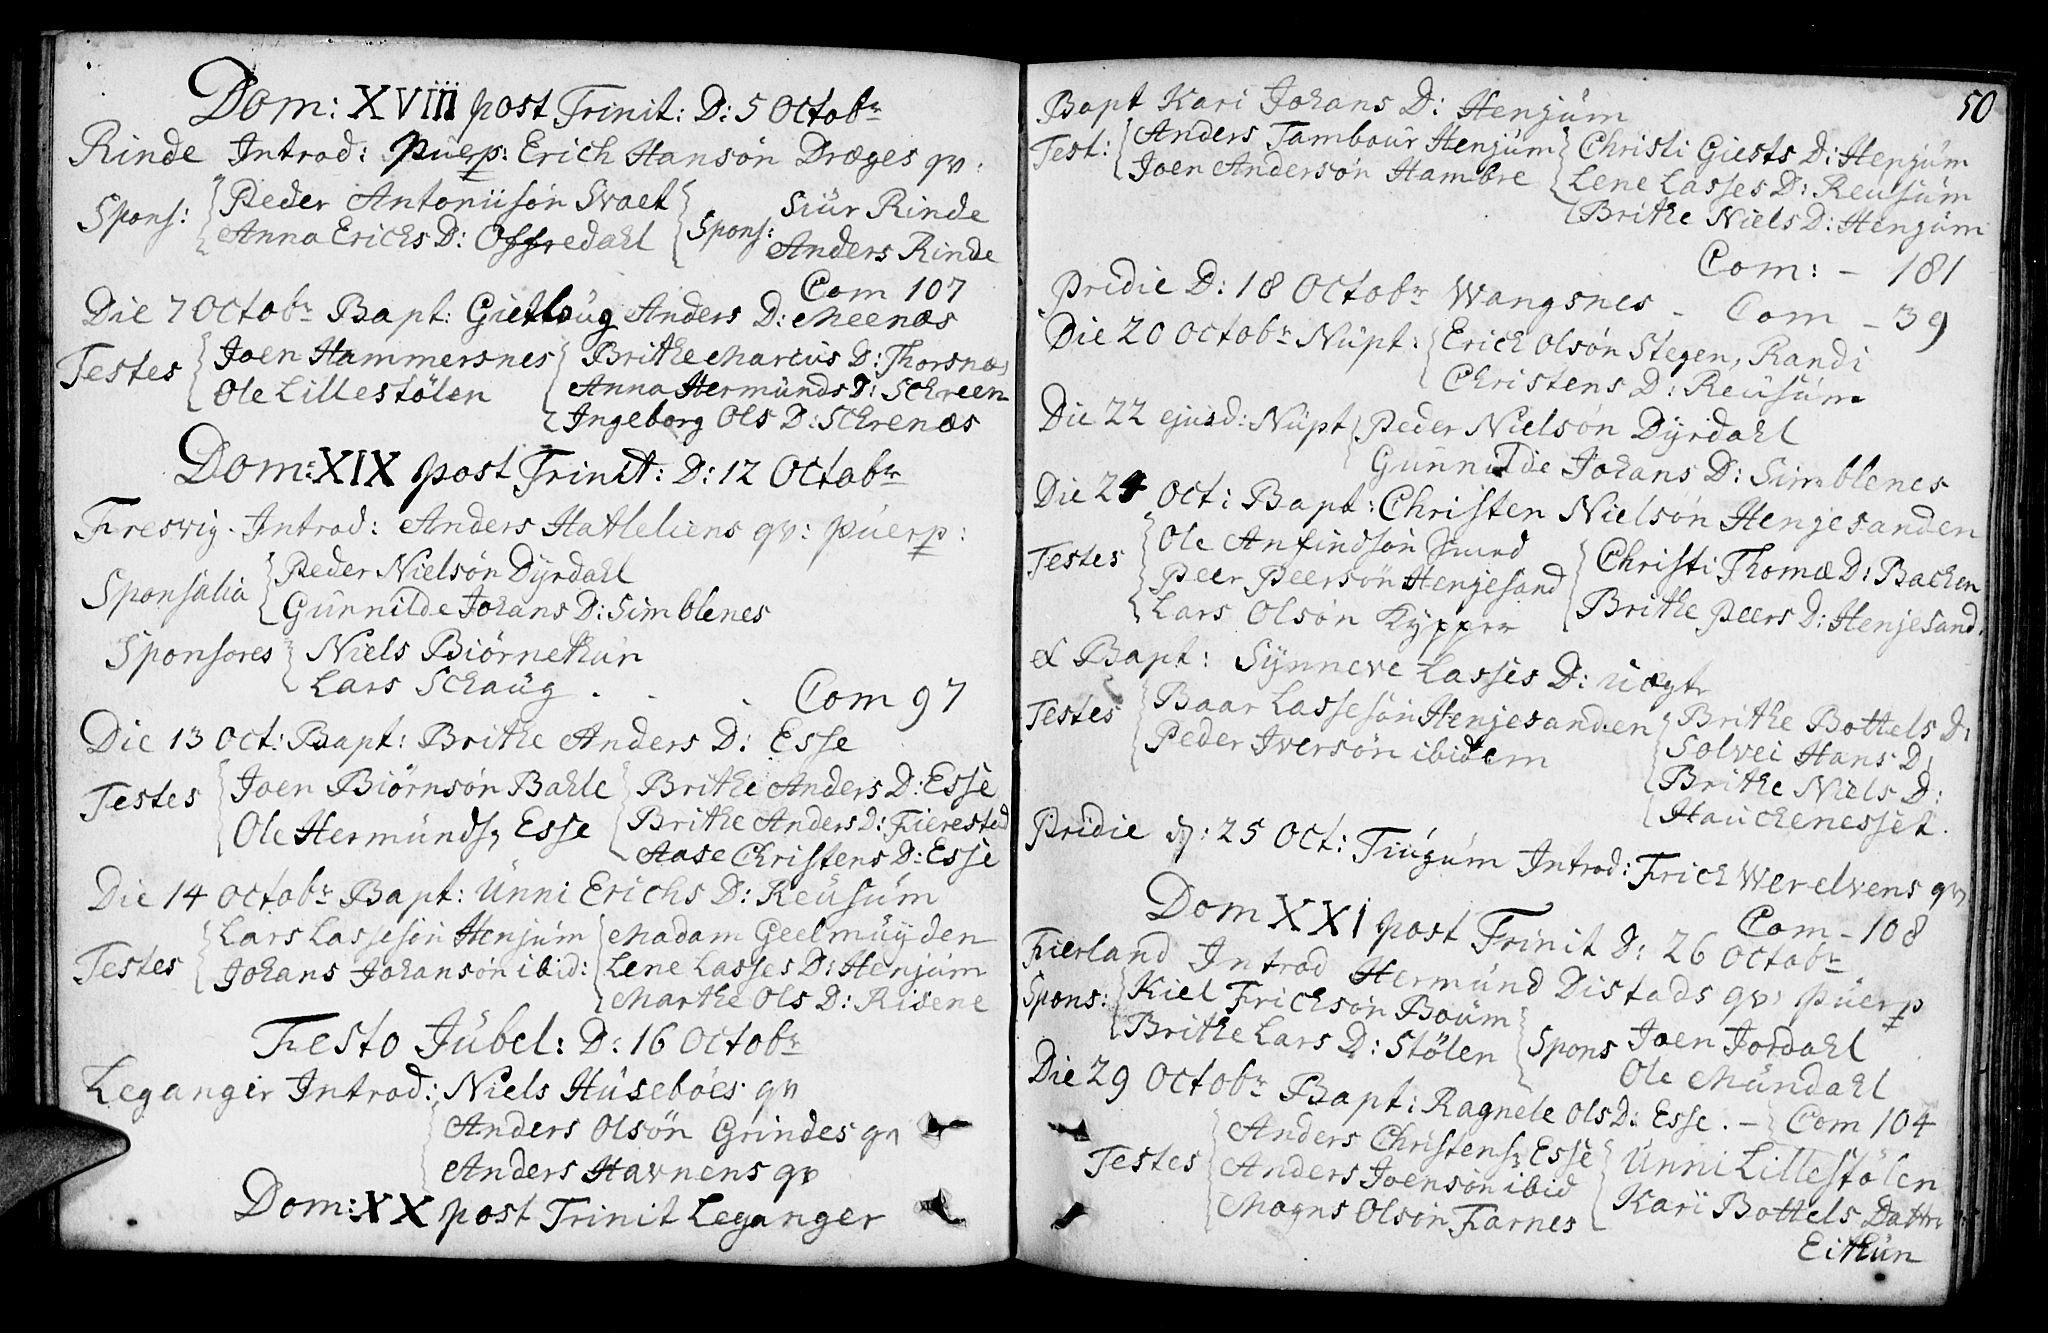 Dom: XVIII post Trinit: D: 5 Octobr
Rinde Introd: puerp: Erich Hansøn Dræges qv:
Spons: Peder Antoniisøn Svaet
Anna Erichs D: Offredahl
Spons: Siür Rinde
Anders Rinde
Com 107
Die 7 Octobr Bapt: Gietloüg Anders D: Meenæs
Testes Joen Hammersnes
Ole Lillestölen
Brithe Marcüs D: Thorsnæs
Anna Hermünds D: Schreen
Ingeborg Ols D: Schrenæs
Dom: XIX post Trinit: D: 12 Octobr
Fresvig. Introd: Anders Hatleliens qv: püerp:
Sponsalia Peder Nielsøn Dÿrdahl
Günnilde Johans D: Simblenes
Sponsores Niels Biörnethün
Lars Schaüg . . . Com 97
Die 13 Oct: Bapt: Brithe Anders D: Esse
Testes Joen Biörnsön Bahle
Ole Hermünds: Esse
Brithe Anders D: Esse
Brithe Anders D: Fierestad
Aase Christens D: Esse
Die 14 Octobr Bapt: Ünni Erichs D: Reüsüm
Testes Lars Lassesön Henjüm
Johans Johansön ibid:
Madam Geelmüÿden
Lene Lasses D: Henjüm
Marthe Ols D: Risene
Festo Jübel: D: 16 Octobr
Leganger Introd: Niels Hüseböes qv
Anders Olsön Grindes qv
Anders Havnens qv
Dom: XX post Trinit Leganger
50
Bapt Kari Johans D: Henjüm
Test: Anders Tamboür Henjüm
Joen Andersön Hambre
Christi Giests D: Henjüm
Lene Lasses D: Reüsüm
Brithe Niels D: Henjüm
Com: - 181
Pridie D: 18 Octobr Wangsnes - Com - 39
Die 20 Octobr Nüpt: Erich Olsøn Stegen, Randi
Christens D: Reüsüm
Die 22 ejusd: Nüpt Peder Nielsøn Dÿrdahl
Günnilde Johans D: Simblenes
Die 24 Oct: Bapt: Christen Nielsøn Henjesanden
Testes Ole Anfindsøn Smed
Peer Peersön Henjesand
Lars Olsön Kÿpper
Christi Thomæ D: Bachen
Brithe Peers D: Henjesand.
& Bapt: Sÿnneve Lasses D:
Testes Baar Lassesön Henjesanden
Peder Iversön ibidem
Brithe Bottels D:
Solvei Hans D:
Brithe Niels D:
Haüchenesset.
Pridie D: 25 Oct: Tiügüm Introd: Erich Werelvens qv
Com - 108
Dom XXI post Trinit D: 26 Octobr
Fierland Introd Hermünd Distads qv: püerp
Spons: Kiel Erichsön Boüm
Brithe Lars D: Stölen
Spons Joen Jordahl
Ole Mündahl
Die 29 Octobr Bapt: Ragnele Ols D: Esse. - Com 104
Testes Anders Christens: Esse
Anders Joensön ibid
Mogns Olsön Farnes
Ünni Lillestölen
Kari Bottels Dattr
Eithün